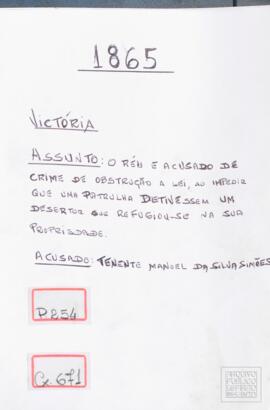 1865
VICTÓRIA
ASSUNTO: O RÉU E ACUSADO DE
CRIME DE OBSTRUÇÃO A LEI, AO IMPEDIR
QUE UMA PATRULHA DETIVESSEM UM
DESERTOR QUE REFUGIOU-SE NA SUA
PROPRIEDADE.
ACUSADO: TENENTE MANOEL DA SILVA SIMÕES
P.254
Cx. 671
ARQUIVO
PÚBLICO